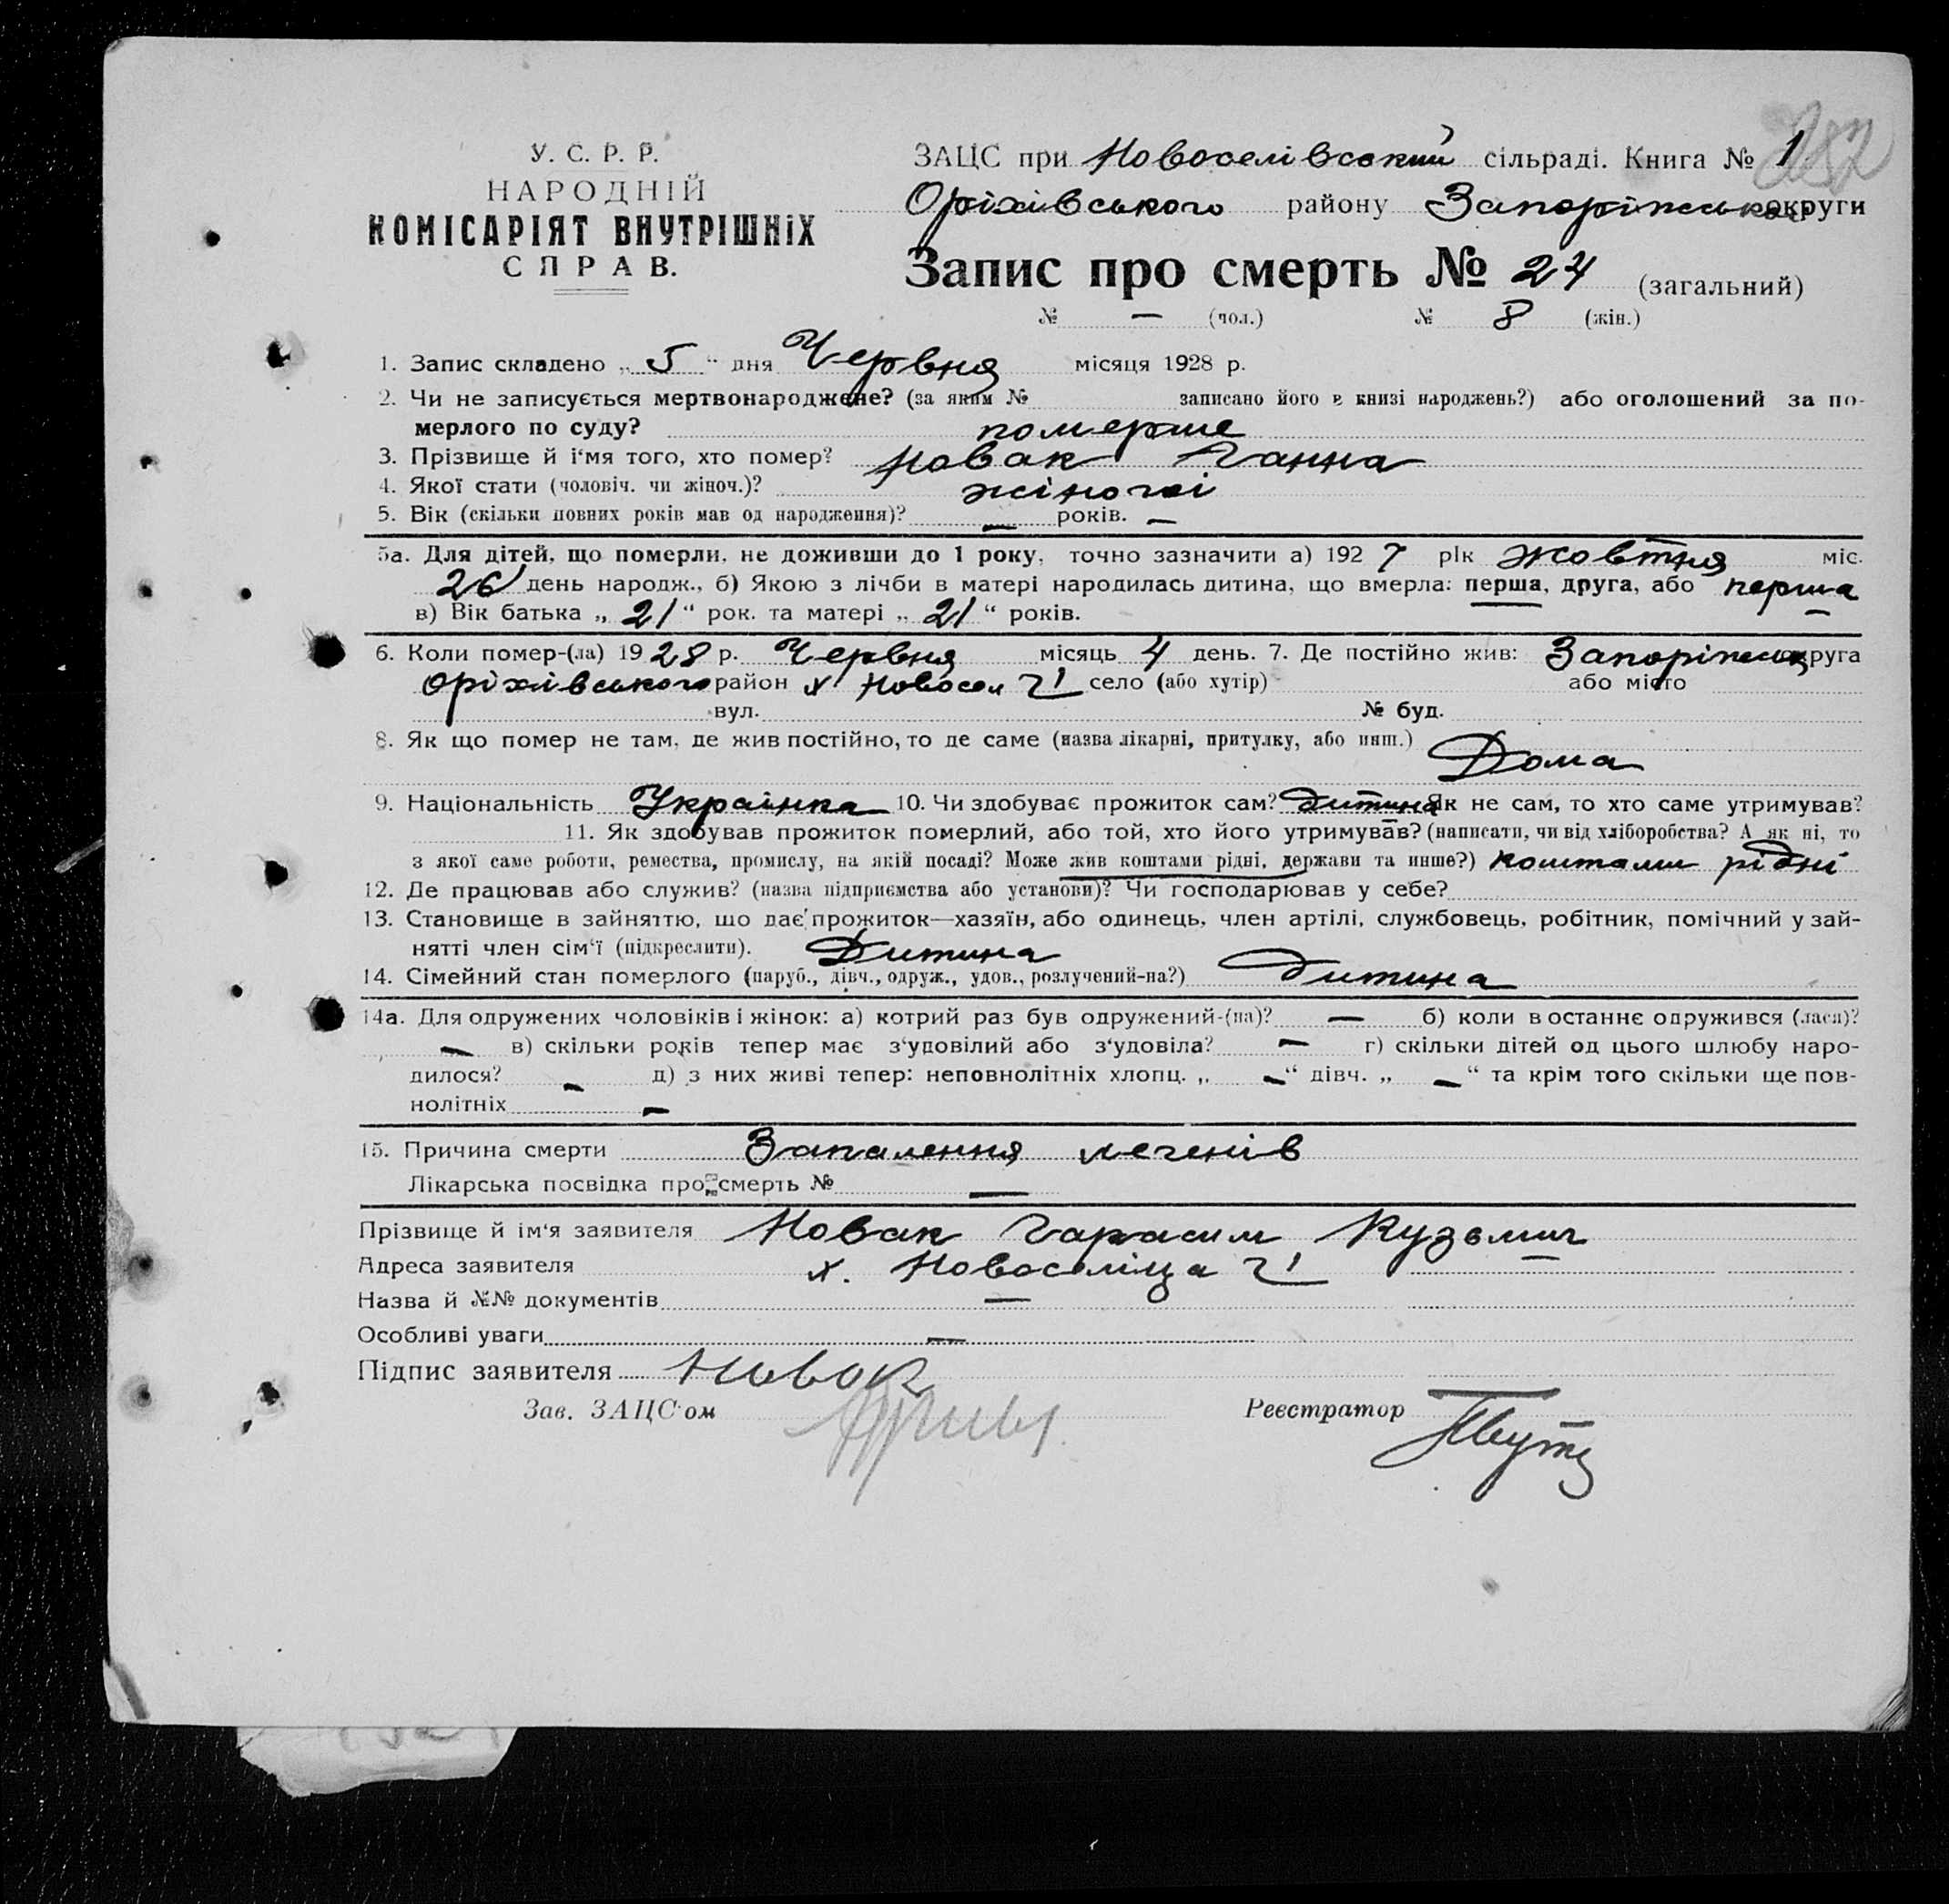 У. С. Р. Р.
НАРОДНІЙ
КОМІСАРІЯТ ВНУТРІШНІХ
СПРАВ.
282
ЗАЦС при Новоселівський сільраді. Книга № 1
Оріхівського району Запоріжської округи
Запис про смерть № 24 (загальний)
№ — (чол.) № 8 (жін.)
1. Запис складено „ 5 “ дня Червня місяця 1928 р.
2. Чи не записується мертвонароджене? (за яким № записано його в книзі народжень?) або оголошений за по-
мерлого по суду? померше
3. Прізвище й і‘мя того, хто помер? Новак Ганна
4. Якої стати (чоловіч. чи жіноч.)? жіночої
5. Вік (скільки повних років мав од народження)? — років. —
5а. Для дітей, що померли, не доживши до 1 року, точно зазначити а) 1927 рік жовтня міс.
26 день народж., б) Якою з лічби в матері народилась дитина, що вмерла: перша, друга, або перша
в) Вік батька „ 21 “ рок. та матері „ 21 “ років.
6. Коли помер-(ла) 1928 р. Червня місяць 4 день. 7. Де постійно жив: Запоріжськ округа
Оріхівського район х Новосел Г/ село (або хутір) або місто
вул. № буд.
8. Як що помер не там, де жив постійно, то де саме (назва лікарні, притулку, або инш.)
Дома
9. Національність Українка 10. Чи здобуває прожиток сам? дитина Як не сам, то хто саме утримував?
11. Як здобував прожиток померлий, або той, хто його утримував? (написати, чи від хліборобства? А як ні, то
з якої саме роботи, ремества, промислу, на якій посаді? Може жив коштами рідні, держави та инше?) коштами рідні
12. Де працював або служив? (назва підприємства або установи)? Чи господарював у себе?
13. Становище в зайняттю, що дає прожиток—хазяїн, або одинець, член артілі, службовець, робітник, помічний у зай-
нятті член сім‘ї (підкреслити). Дитина
14. Сімейний стан померлого (паруб., дівч., одруж., удов., розлучений-на?) Дитина
14а. Для одружених чоловіків і жінок: а) котрий раз був одружений-(на)? — б) коли в останнє одружився (лася)?
— в) скільки років тепер має з‘удовілий або з‘удовіла? — г) скільки дітей од цього шлюбу наро-
дилося? — д) з них живі тепер: неповнолітніх хлопц. „ — “ дівч. „ — “ та крім того скільки ще пов-
нолітніх —
15. Причина смерти Запалення легенів
Лікарська посвідка про смерть № —
Прізвище й ім‘я заявителя Новак Гарасим Кузьмич
Адреса заявителя х. Новоселіца Г/
Назва й №№ документів —
Особливі уваги —
Підпис заявителя Новак
Зав. ЗАЦС‘ом Реєстратор